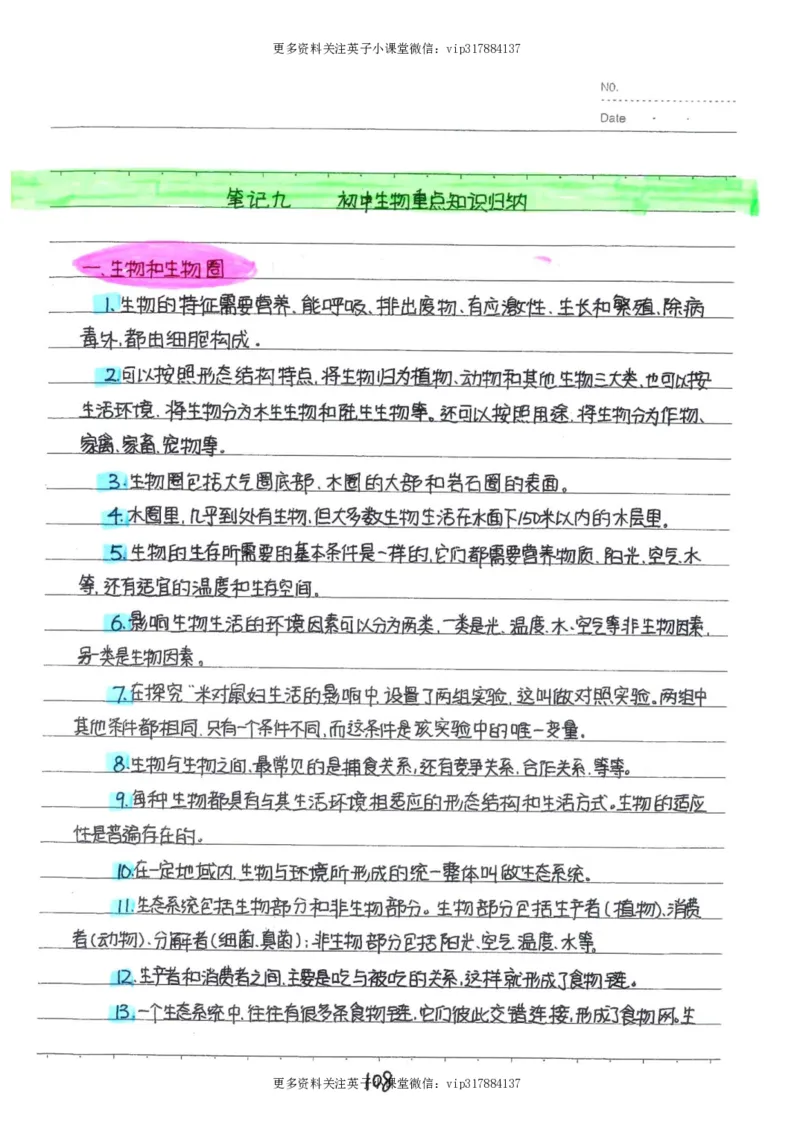 更多资料关注英子小课堂微信：vip317884137
NO.
Date
笔记九 初中生物重点知识归纳
一.生物和生物圈
1.生物的特征需要营养、能呼吸、排出废物、有应激性、生长和繁殖、除病
毒外,都由细胞构成。
2.可以按照形态结构特点,将生物归为植物、动物和其他生物三大类,也可以按
生活环境,将生物分为水生生物和陆生生物等。还可以按照用途,将生物分为作物、
家禽、家畜、宠物等。
3.生物圈包括大气圈底部、水圈的大部和岩石圈的表面。
4.水圈里,几乎到处有生物,但大多数生物生活在水面下150米以内的水层里。
5.生物的生存所需要的基本条件是一样的,它们都需要营养物质、阳光、空气、水
等,还有适宜的温度和生存空间。
6.影响生物生活的环境因素可以分为两类,一类是光、温度、水、空气等非生物因素,
另一类是生物因素。
7.在探究"米对鼠妇生活的影响中,设置了两组实验,这叫做对照实验。两组中
其他条件都相同,只有一个条件不同,而这条件是该实验中的唯一变量。
8.生物与生物之间,最常见的是捕食关系,还有竞争关系、合作关系、等等。
9.每种生物都具有与其生活环境相适应的形态结构和生活方式。生物的适应
性是普遍存在的。
10.在一定地域内,生物与环境所形成的统一整体叫做生态系统。
11.生态系统包括生物部分和非生物部分。生物部分包括生产者(植物)、消费
者(动物)、分解者(细菌、真菌);非生物部分包括阳光、空气、温度、水等。
12.生产者和消费者之间,主要是吃与被吃的关系,这样就形成了食物链。
13.一个生态系统中,往往有很多条食物链,它们彼此交错连接,形成了食物网。生
108
更多资料关注英子小课堂微信：vip317884137